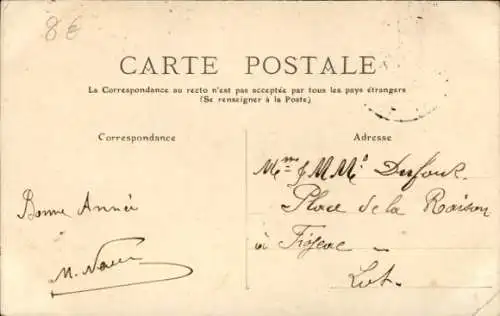 8€
CARTE POSTALE
La Correspondance au recto n'est pas acceptée par tous les pays étrangers
(Se renseigner à la Poste)
Correspondance
Adresse
Bonne Année
M.
Mme & MMes Dufour.
Place de la Raison
à Figeac
Lot.